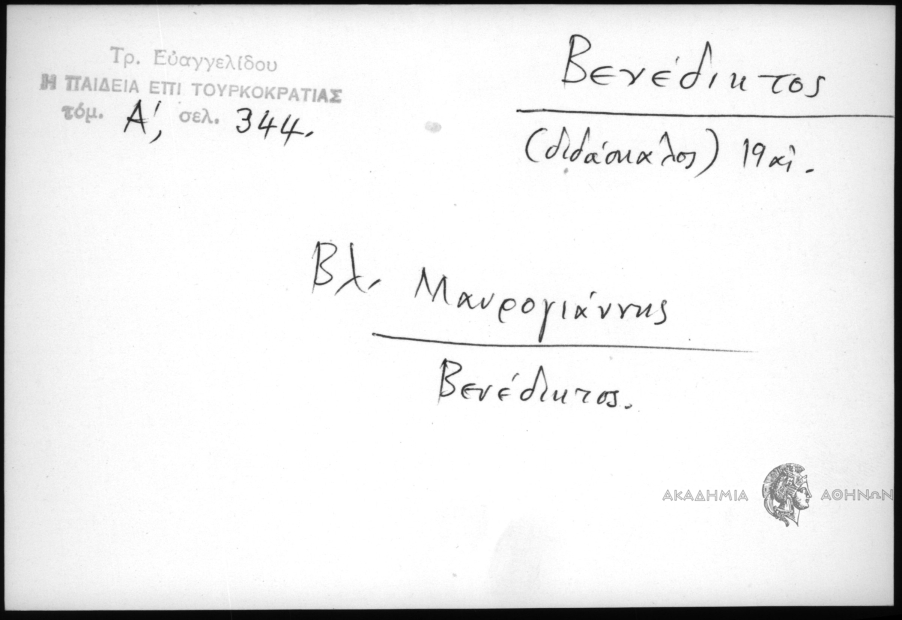 Τρ. Εὐαγγελίδου
Η ΠΑΙΔΕΙΑ ΕΠΙ ΤΟΥΡΚΟΚΡΑΤΙΑΣ
τόμ. Α', σελ. 344.
Βενέδικτος
(διδάσκαλος) 19 αἰ.
Βλ. Μαυρογιάννης
Βενέδικτος.
ΑΚΑΔΗΜΙΑ ΑΘΗΝΩΝ